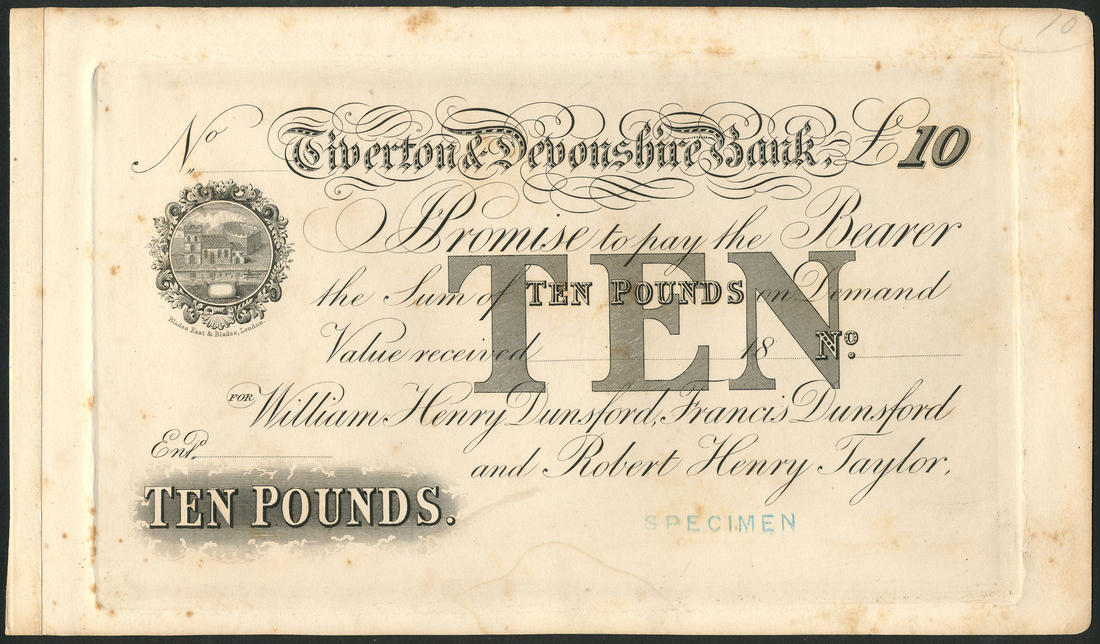 10
No Tiverton & Devonshire Bank, £10
I Promise to pay the Bearer
the Sum of TEN POUNDS on Demand
TEN
Value received 18 No.
Blades East & Blades, London.
FOR William Henry Dunsford, Francis Dunsford
and Robert Henry Taylor,
Entd.
TEN POUNDS.
SPECIMEN